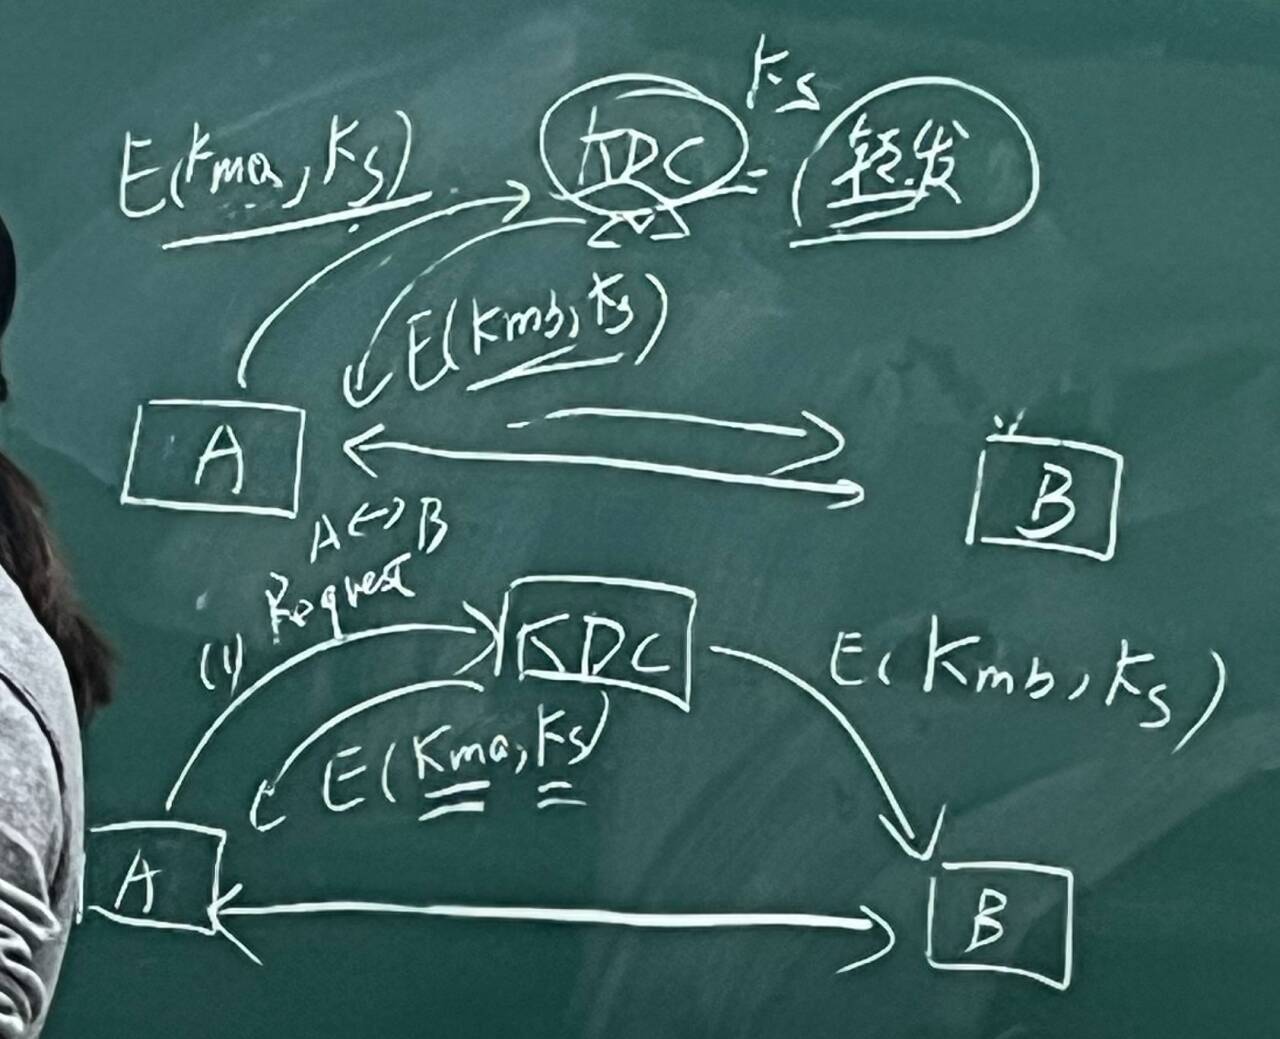 Ks
E(Kma, Ks)
KDC
转发
E(Kmb, Ks)
A
B
A↔B
Request
(1)
KDC
E(Kmb, Ks)
E(Kma, Ks)
A
B